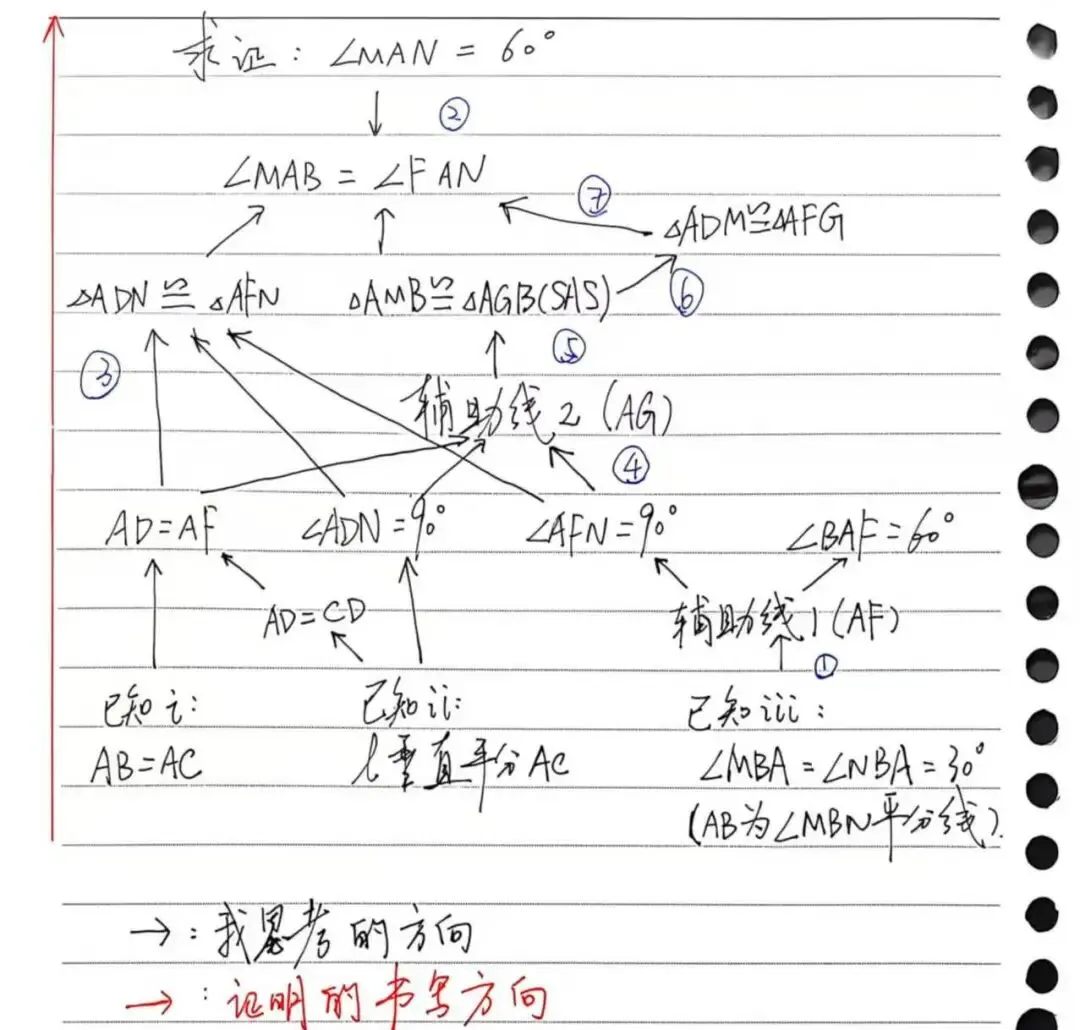 求证: ∠MAN = 60°
↓ ②
∠MAB = ∠FAN
⑦
△ADM≌△AFG
△ADN ≌ △AFN
△AMB≌△AGB(SAS)
⑥
③
⑤
辅助线2 (AG)
④
AD=AF
∠ADN=90°
∠AFN=90°
∠BAF=60°
AD=CD
辅助线1(AF)
①
已知i:
已知ii:
已知iii:
AB=AC
l垂直平分AC
∠MBA=∠NBA=30°
(AB为∠MBN平分线).
→: 我思考的方向
→: 证明的书写方向